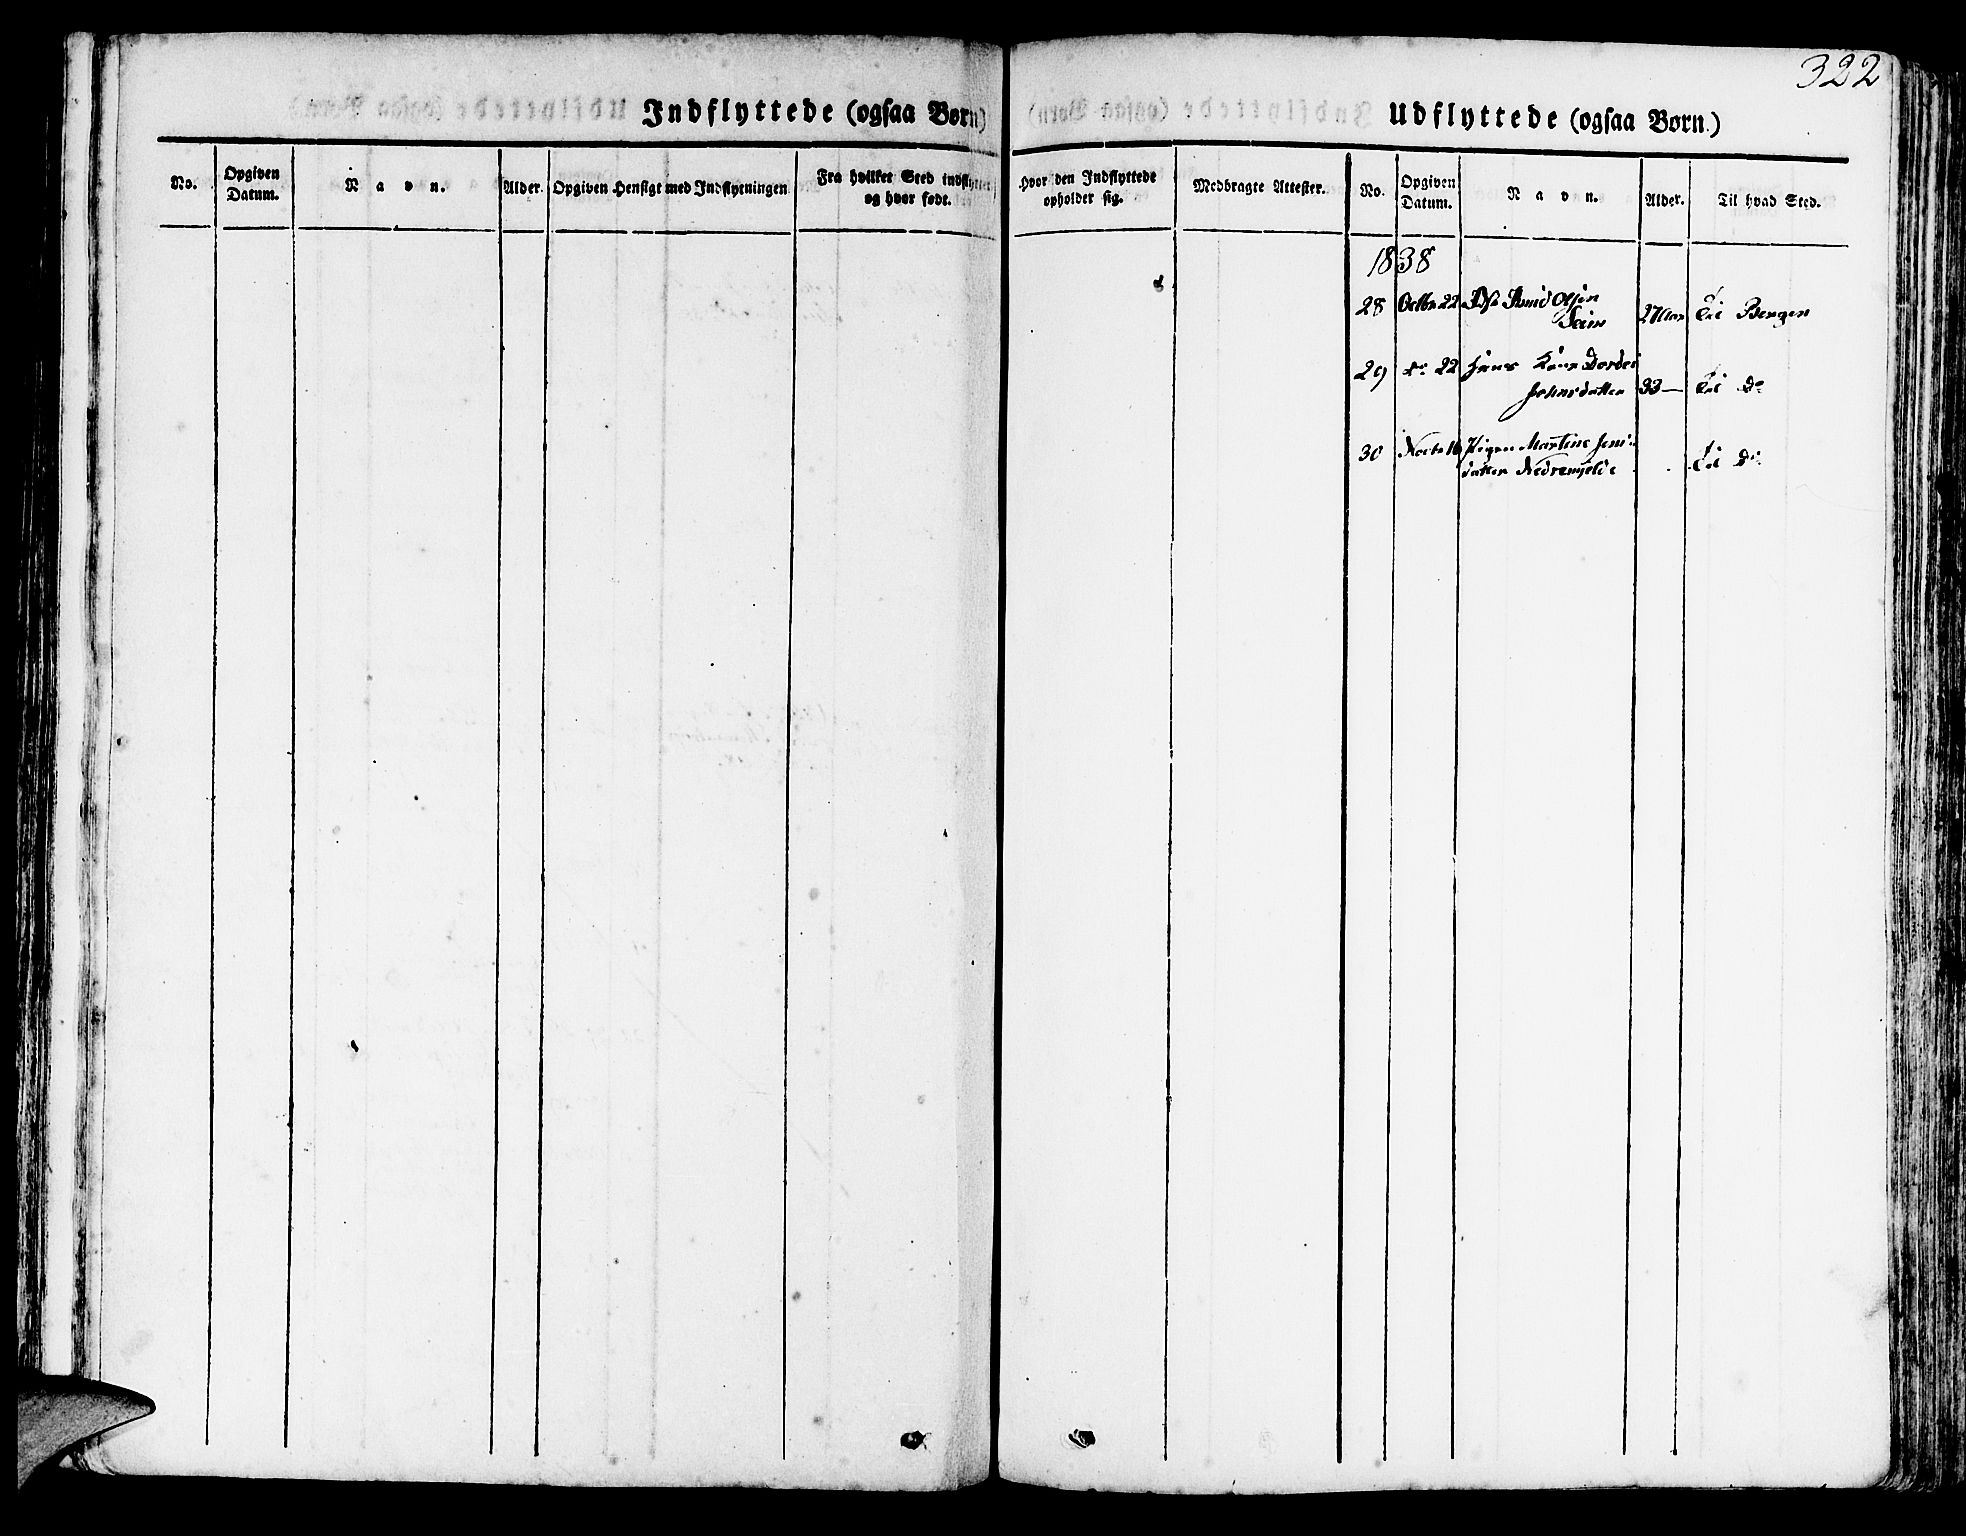 322
Indflyttede (ogsaa Børn)
No.
Opgiven
Datum.
Navn.
Alder.
Opgiven Hensigt med Indflytningen
Fra hvilket Sted indflyttet
og hvor født.
Udflyttede (ogsaa Børn.)
Hvor den Indflyttede
opholder sig.
Medbragte Attester.
No.
Opgiven
Datum.
Navn.
Alder.
Til hvad Sted.
1838
28 Octbr 22 Olsen 27 Aar Til Bergen
Seim
29 do 22 Hans Kone Dordei
Johnsdatter 33 — Til Do
30 Novbr 16 Pigen Martine Jens-
datter Til Do